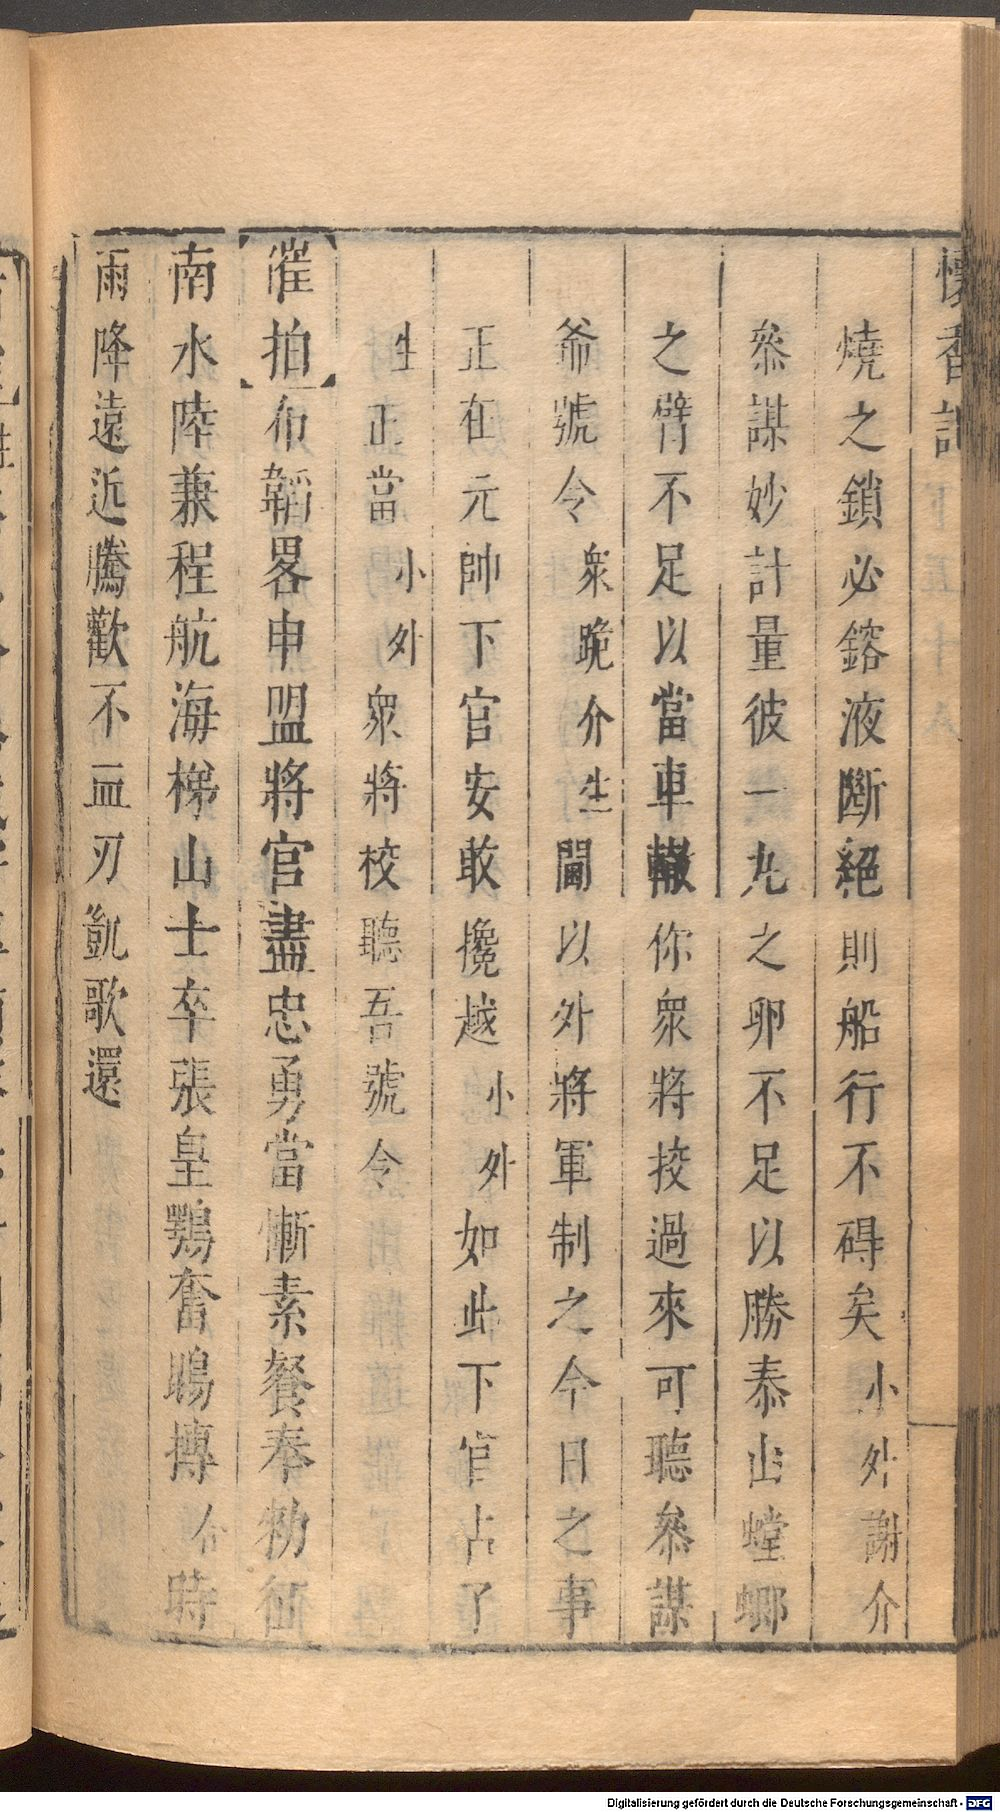 懷香記
燒之鎖必鎔液斷絕則船行不碍矣小外謝介
叅謀妙計量彼一丸之卵不足以勝泰山螳螂
之臂不足以當車轍你衆將挍過來可聽叅謀
爺號令衆跪介生閫以外將軍制之今日之事
正在元帥下官安敢攙越小外如此下官占了
生正當小外衆將校聽吾號令
【催拍】布韜畧申盟將官盡忠勇當慚素餐奉勑征
南水陸兼程航海梯山士卒張皇鶚奮鵰摶合時
雨降遠近騰歡不血刃凱歌還
Digitalisierung gefördert durch die Deutsche Forschungsgemeinschaft - DFG